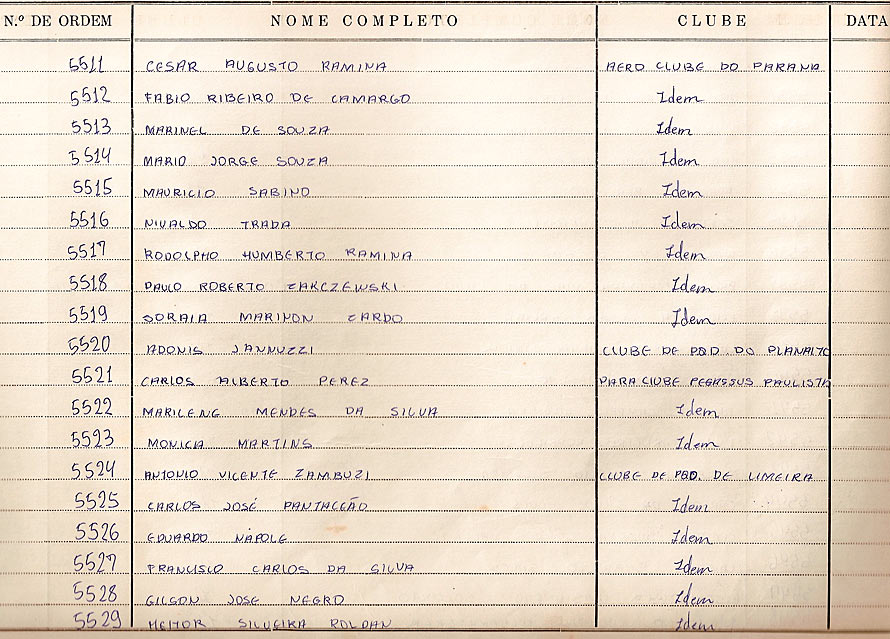 N.º DE ORDEM NOME COMPLETO CLUBE DATA
5511 CESAR AUGUSTO RAMINA AERO CLUBE DO PARANA
5512 FABIO RIBEIRO DE CAMARGO Idem
5513 MARINEL DE SOUZA Idem
5514 MARIO JORGE SOUZA Idem
5515 MAURICIO SABINO Idem
5516 NIVALDO TRADA Idem
5517 RODOLPHO HUMBERTO RAMINA Idem
5518 PAULO ROBERTO ZAKCZEWSKI Idem
5519 SORAIA MARINON ZARDO Idem
5520 ADONIS JANNUZZI CLUBE DE PQD DO PLANALTO
5521 CARLOS ALBERTO PEREZ PARA CLUBE PEGASSUS PAULISTA
5522 MARILENG MENDES DA SILVA Idem
5523 MONICIA MARTINS Idem
5524 ANTONIO VICENTE ZAMBUZI CLUBE DE PQD. DE LIMEIRA
5525 CARLOS JOSÉ PANTALEÃO Idem
5526 EDUARDO NAPOLE Idem
5527 FRANCISCO CARLOS DA SILVA Idem
5528 GILSON JOSE NEGRO Idem
5529 HEITOR SILVEIRA ROLDAN Idem